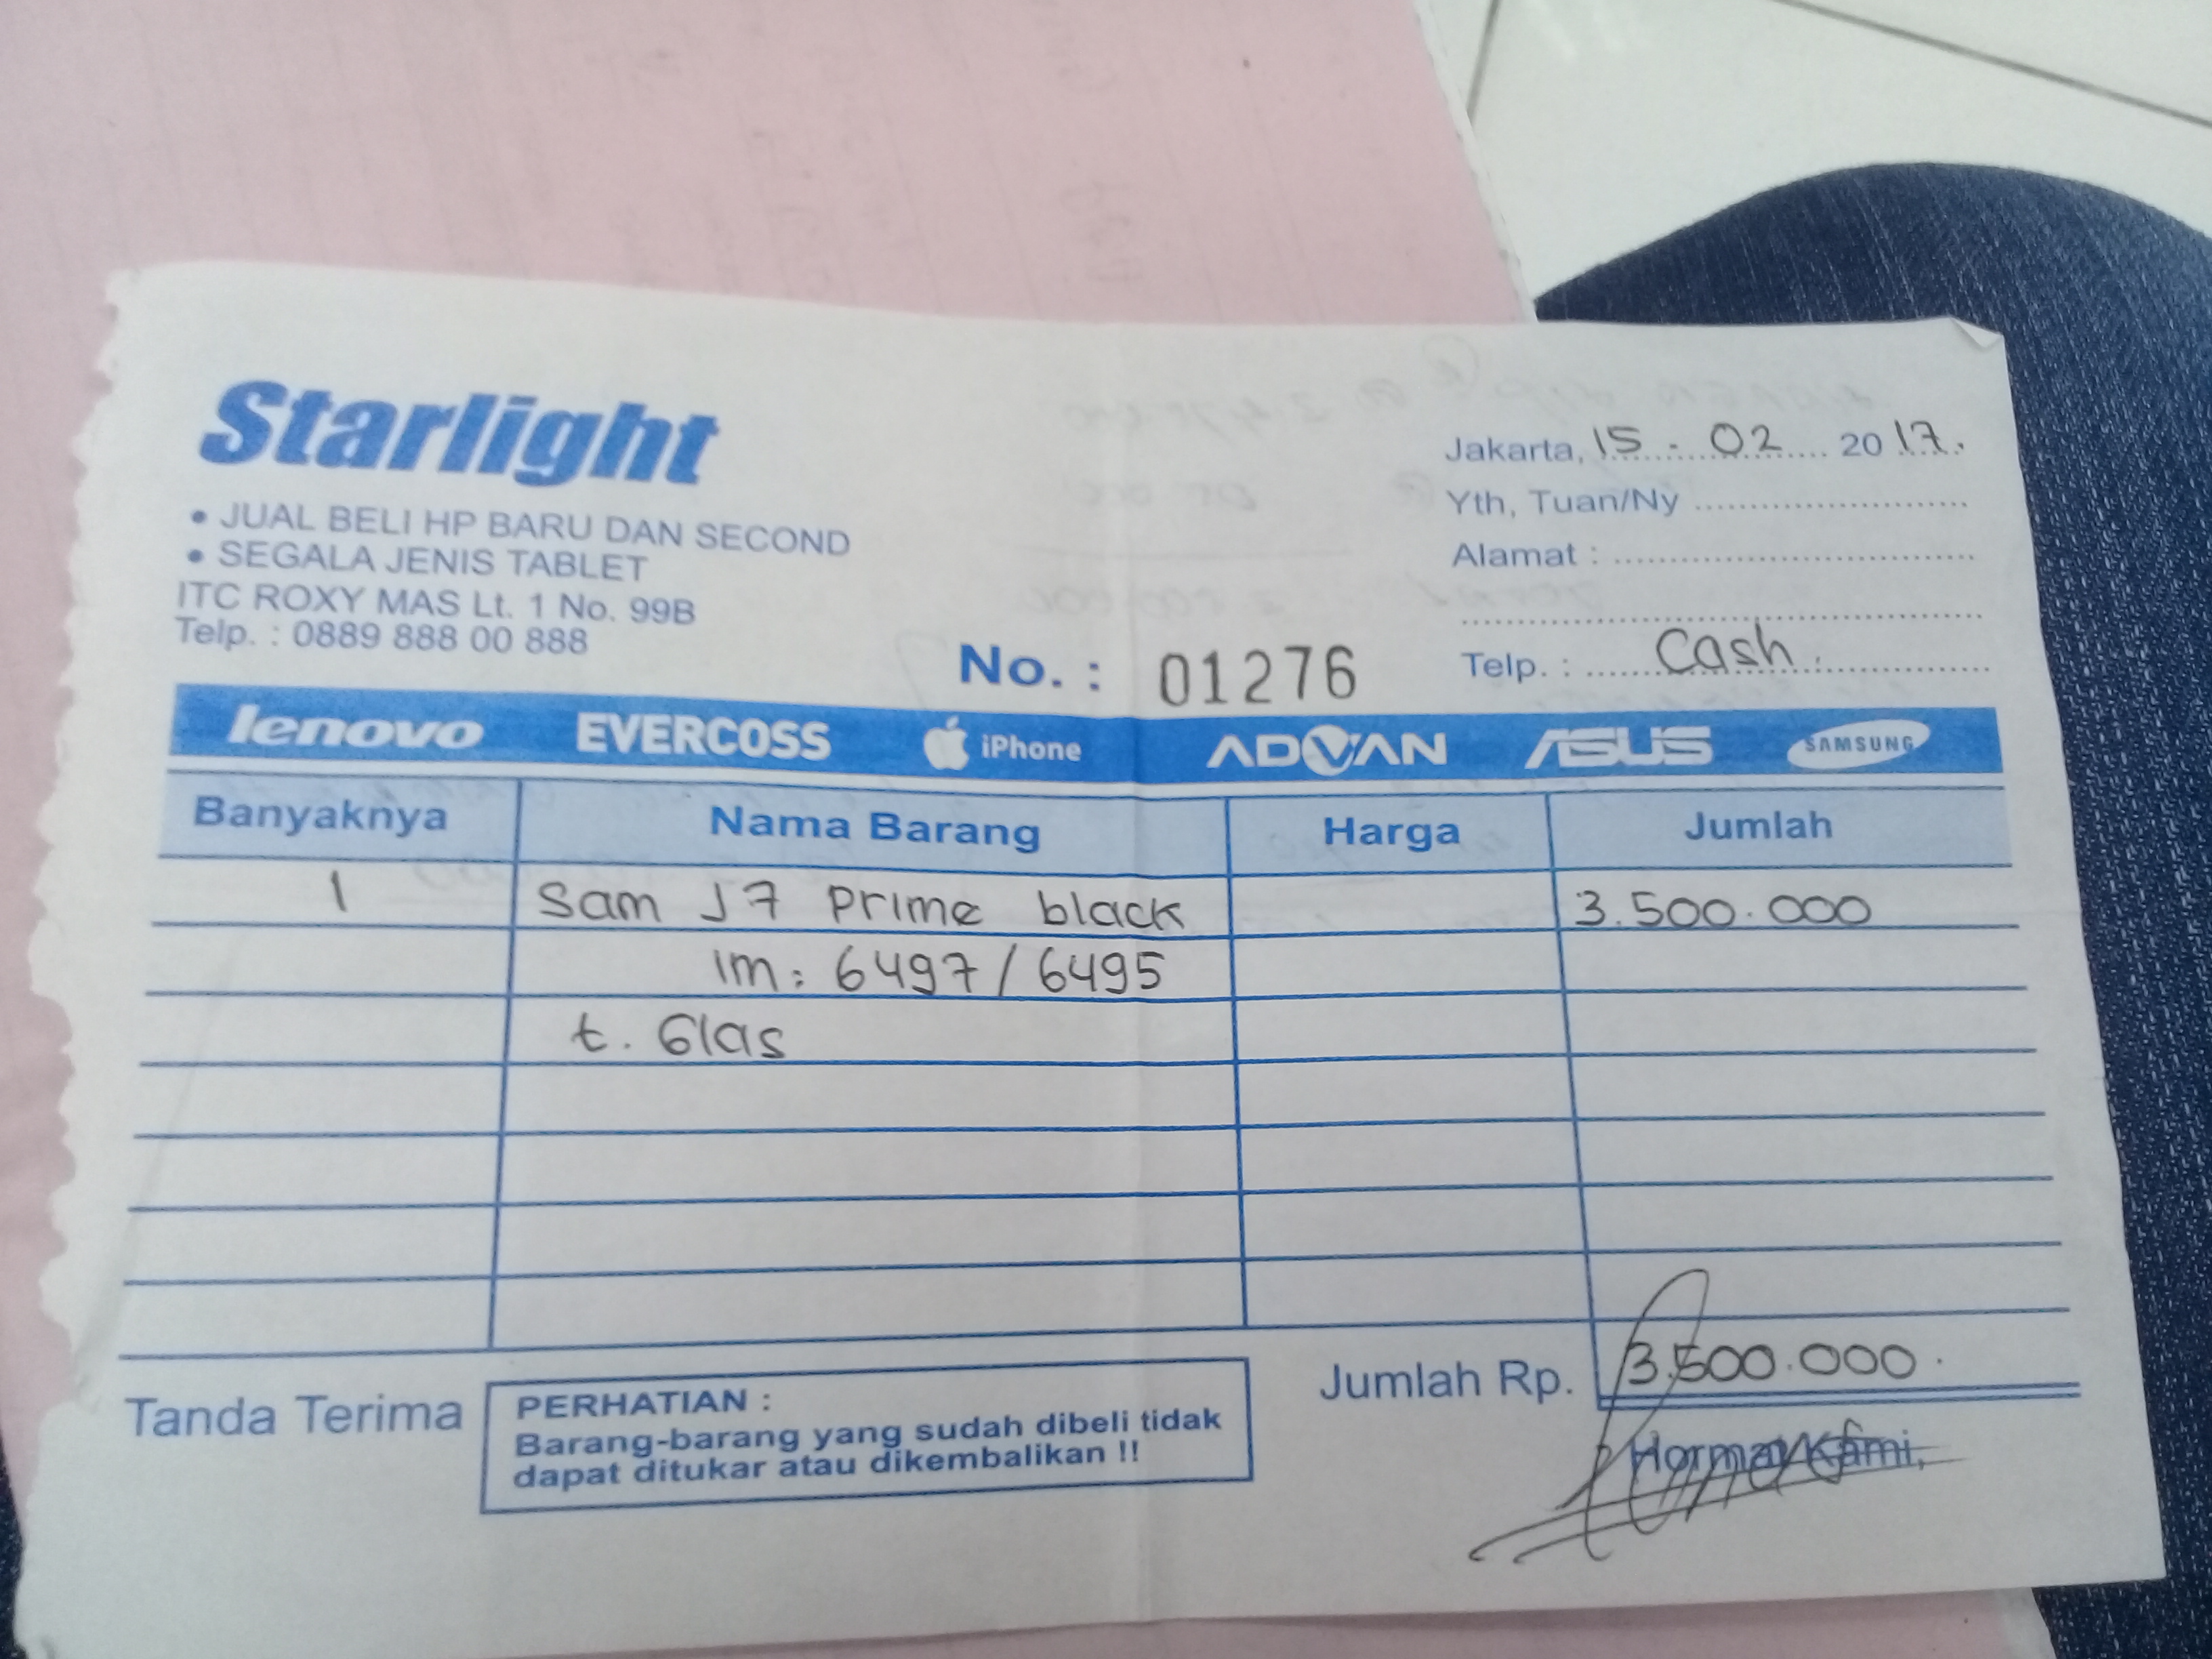 Starlight
• JUAL BELI HP BARU DAN SECOND
• SEGALA JENIS TABLET
ITC ROXY MAS Lt. 1 No. 99B
Telp. : 0889 888 00 888
Jakarta, 15 . 02 20 17.
Yth, Tuan/Ny
Alamat :
No. : 01276
Telp. : Cash.
lenovo EVERCOSS iPhone ADVAN ASUS SAMSUNG
Banyaknya Nama Barang Harga Jumlah
1 Sam J7 Prime black 3.500.000
im: 6497 / 6495
t. Glas
Tanda Terima
PERHATIAN :
Barang-barang yang sudah dibeli tidak
dapat ditukar atau dikembalikan !!
Jumlah Rp. 3.500.000
Hormat Kami,